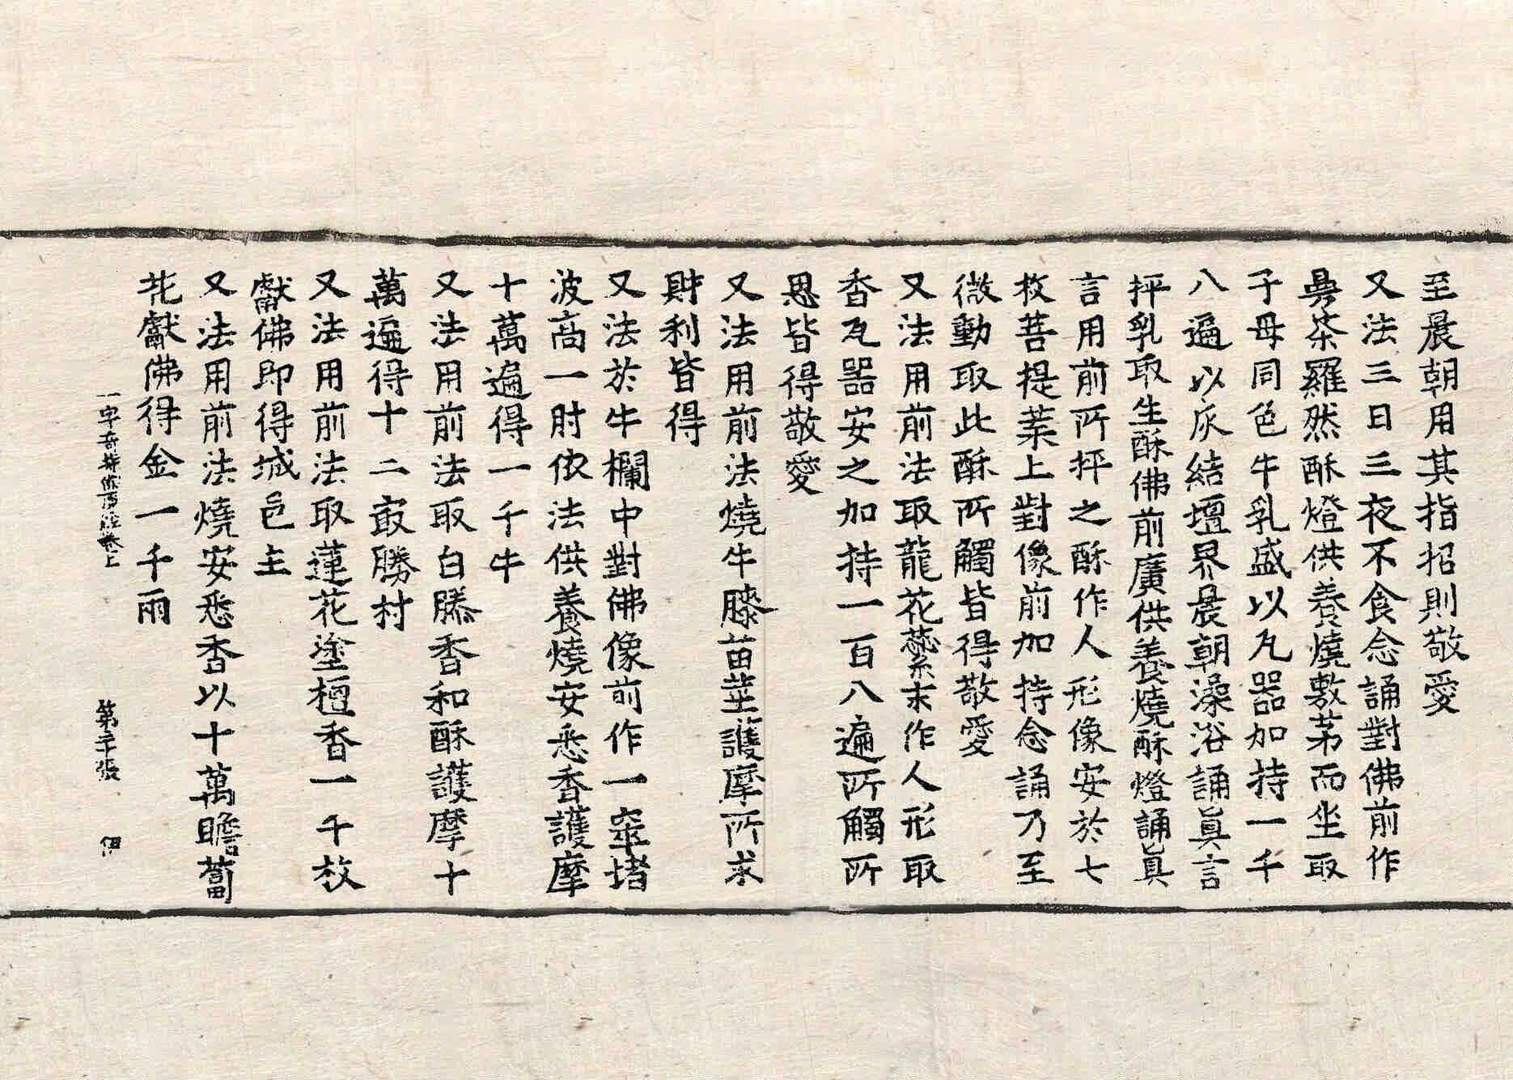 至晨朝用其指招則敬愛
又法三日三夜不食念誦對佛前作
曼荼羅然酥燈供養燒敷茅而坐取
子母同色牛乳盛以瓦器加持一千
八遍以灰結壇界晨朝澡浴誦真言
抨乳取生酥佛前廣供養燒酥燈誦真
言用前所抨之酥作人形像安於七
枚菩提葉上對像前加持念誦乃至
微動取此酥所觸皆得敬愛
又法用前法取龍花蘂末作人形取
香瓦器安之加持一百八遍所觸所
思皆得敬愛
又法用前法燒牛膝苗莖護摩所求
財利皆得
又法於牛欄中對佛像前作一窣堵
波高一肘依法供養燒安悉香護摩
十萬遍得一千牛
又法用前法取白膠香和酥護摩十
萬遍得十二㝡勝村
又法用前法取蓮花塗檀香一千枚
獻佛即得城邑主
又法用前法燒安悉香以十萬瞻蔔
花獻佛得金一千兩
一字奇特佛頂經卷上 第 張 伊